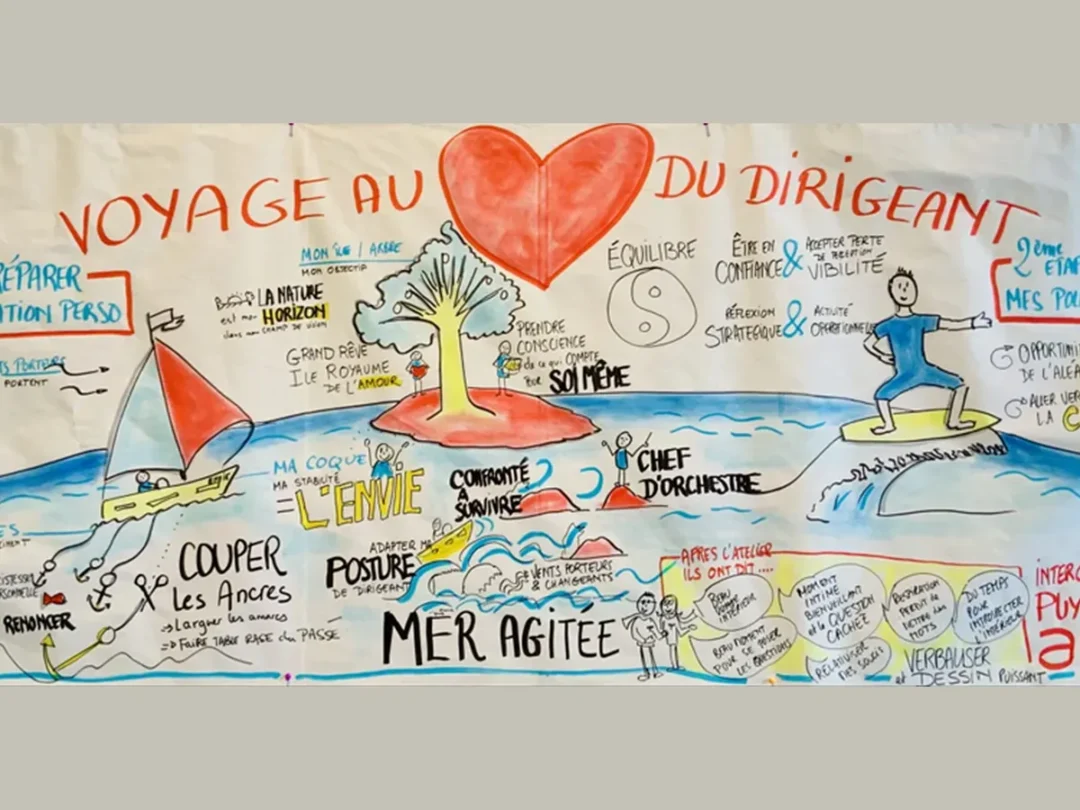 VOYAGE AU
DU DIRIGEANT
PRÉPARER
ATION PERSO
PORTENT
MON ÎLE / ARBRE
MON OBJECTIF
LA NATURE
est mon HORIZON
dans mon CHAMP DE VISION
GRAND RÊVE
ILE ROYAUME
DE L'AMOUR
PRENDRE
CONSCIENCE
de ce qui COMPTE
POUR SOI MÊME
ÉQUILIBRE
ÊTRE EN
CONFIANCE
&
ACCEPTER PERTE
VIBILITÉ
RÉFLEXION
STRATEGIQUE
&
ACTIVITÉ
OPERATIONNELLE
2ème ETAP
MES POU
OPPORTUNI
DE L'ALÉA
ALLER VER
LA C
MA COQUE
MA STABILITÉ
= L'ENVIE
CONFRONTÉ
À
SURVIVRE
CHEF
D'ORCHESTRE
COUPER
Les Ancres
→ Larguer les amarres
⇒ FAIRE TABLE RASE du PASSÉ
RENONCER
ADAPTER MA
POSTURE
DE DIRIGEANT
VENTS PORTEURS
& CHANGEANTS
MER AGITÉE
APRES L'ATELIER
ILS ONT DIT....
BEAU MOMENT
POUR SE POSER
LES QUESTIONS
MOMENT
INTIME
BIENVEILLANT
et la QUESTION
CACHÉE
RESPIRATION
PERMIT de
METTRE des
MOTS
DU TEMPS
POUR
INTROSPECTER
L'INTÉRIEUR
RELATIVISER
MES SOUCIS
VERBALISER
et DESSIN PUISSANT
INTERC
PUY
a